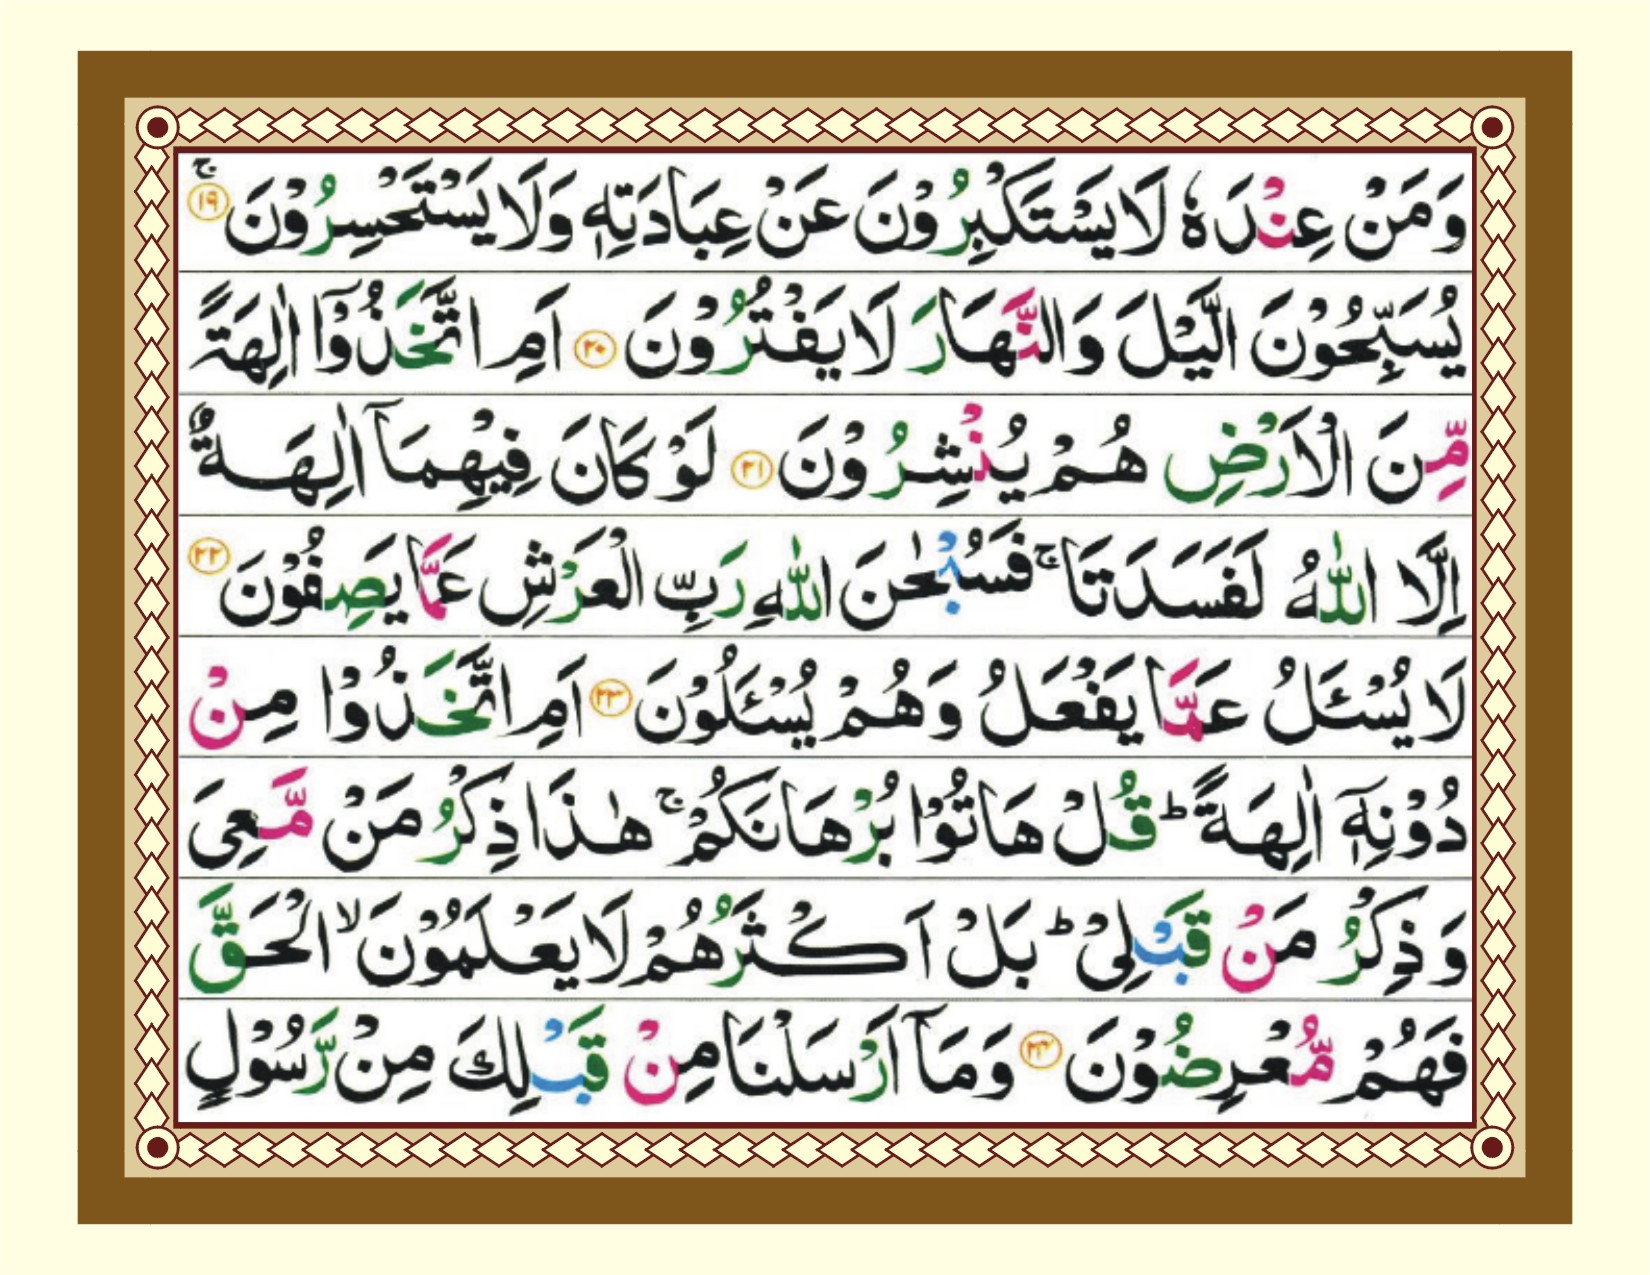 وَمَنْ عِنْدَهٗ لَا يَسْتَكْبِرُوْنَ عَنْ عِبَادَتِهٖ وَلَا يَسْتَحْسِرُوْنَ ۚ ﴿١٩﴾
يُسَبِّحُوْنَ الَّيْلَ وَالنَّهَارَ لَا يَفْتُرُوْنَ ﴿٢٠﴾ اَمِ اتَّخَذُوْۤا اٰلِهَةً
مِّنَ الْاَرْضِ هُمْ يُنْشِرُوْنَ ﴿٢١﴾ لَوْ كَانَ فِيْهِمَاۤ اٰلِهَةٌ
اِلَّا اللّٰهُ لَفَسَدَتَا ۚ فَسُبْحٰنَ اللّٰهِ رَبِّ الْعَرْشِ عَمَّا يَصِفُوْنَ ﴿٢٢﴾
لَا يُسْـَٔلُ عَمَّا يَفْعَلُ وَهُمْ يُسْـَٔلُوْنَ ﴿٢٣﴾ اَمِ اتَّخَذُوْا مِنْ
دُوْنِهٖۤ اٰلِهَةً ؕ قُلْ هَاتُوْا بُرْهَانَكُمْ ۚ هٰذَا ذِكْرُ مَنْ مَّعِىَ
وَذِكْرُ مَنْ قَبْلِىْ ؕ بَلْ اَكْثَرُهُمْ لَا يَعْلَمُوْنَ ۙ الْحَقَّ
فَهُمْ مُّعْرِضُوْنَ ﴿٢٤﴾ وَمَاۤ اَرْسَلْنَا مِنْ قَبْلِكَ مِنْ رَّسُوْلٍ